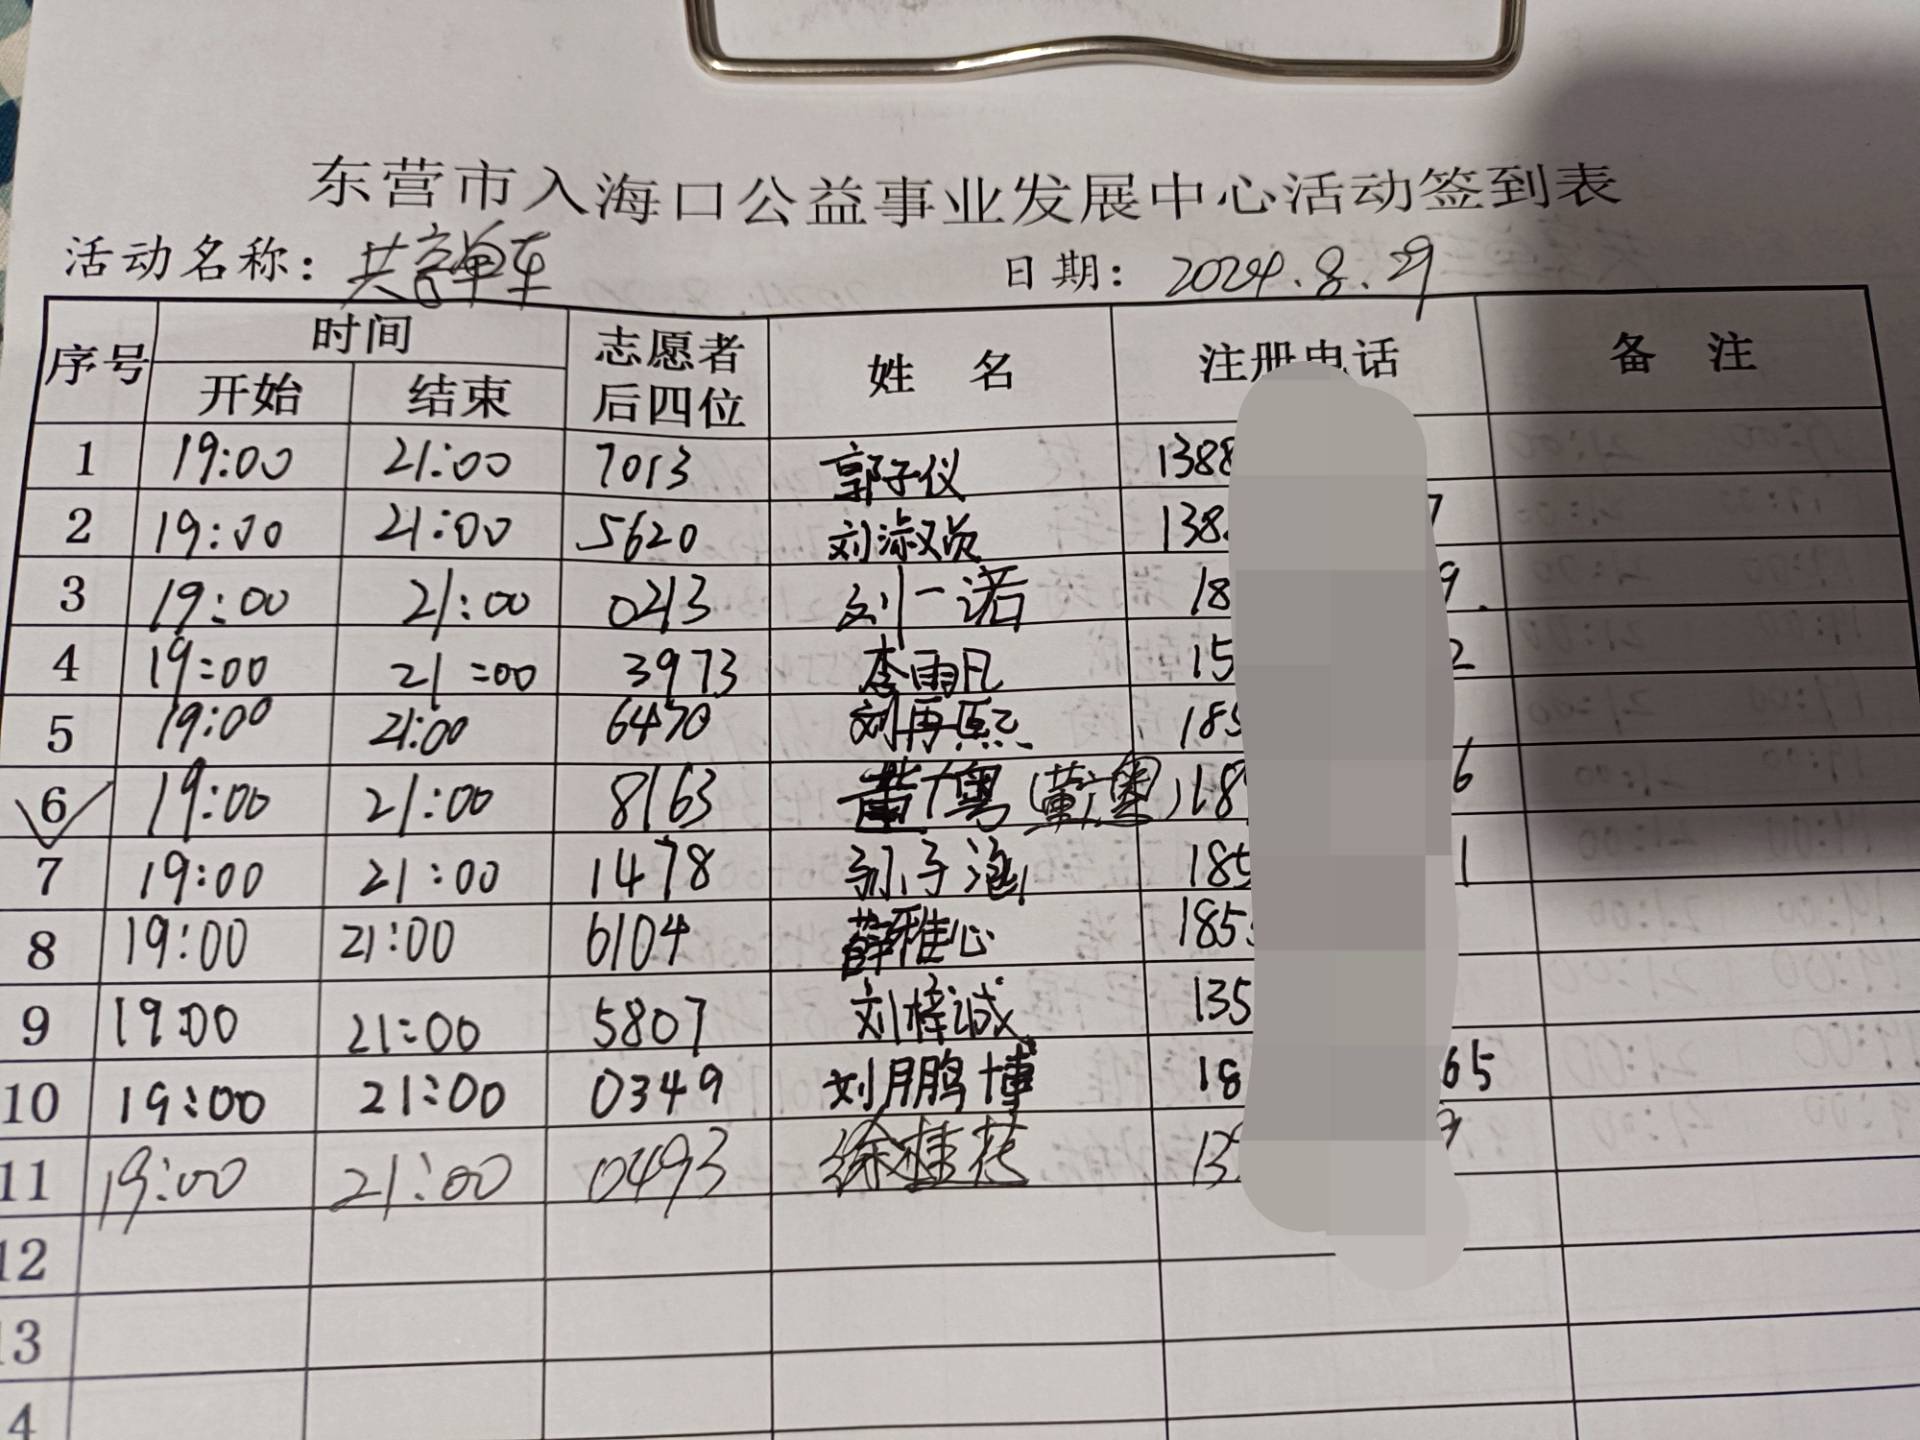 东营市入海口公益事业发展中心活动签到表
活动名称：共享单车 日期：2024.8.29
序号 时间 志愿者后四位 姓名 注册电话 备注
开始 结束
1 19:00 21:00 7013 郭子仪 1388
2 19:00 21:00 5620 刘淑贤 138 7
3 19:00 21:00 0213 刘一诺 18 9.
4 19:00 21:00 3973 李雨凡 15 2
5 19:00 21:00 6470 刘再熙 185
6 19:00 21:00 8163 18 6
7 19:00 21:00 1478 孙子涵 185 1
8 19:00 21:00 6104 薛雅心 185
9 19:00 21:00 5807 刘梓诚 135
10 19:00 21:00 0349 刘鹏博 18 65
11 19:00 21:00 0493 徐桂花 13
12
13
4